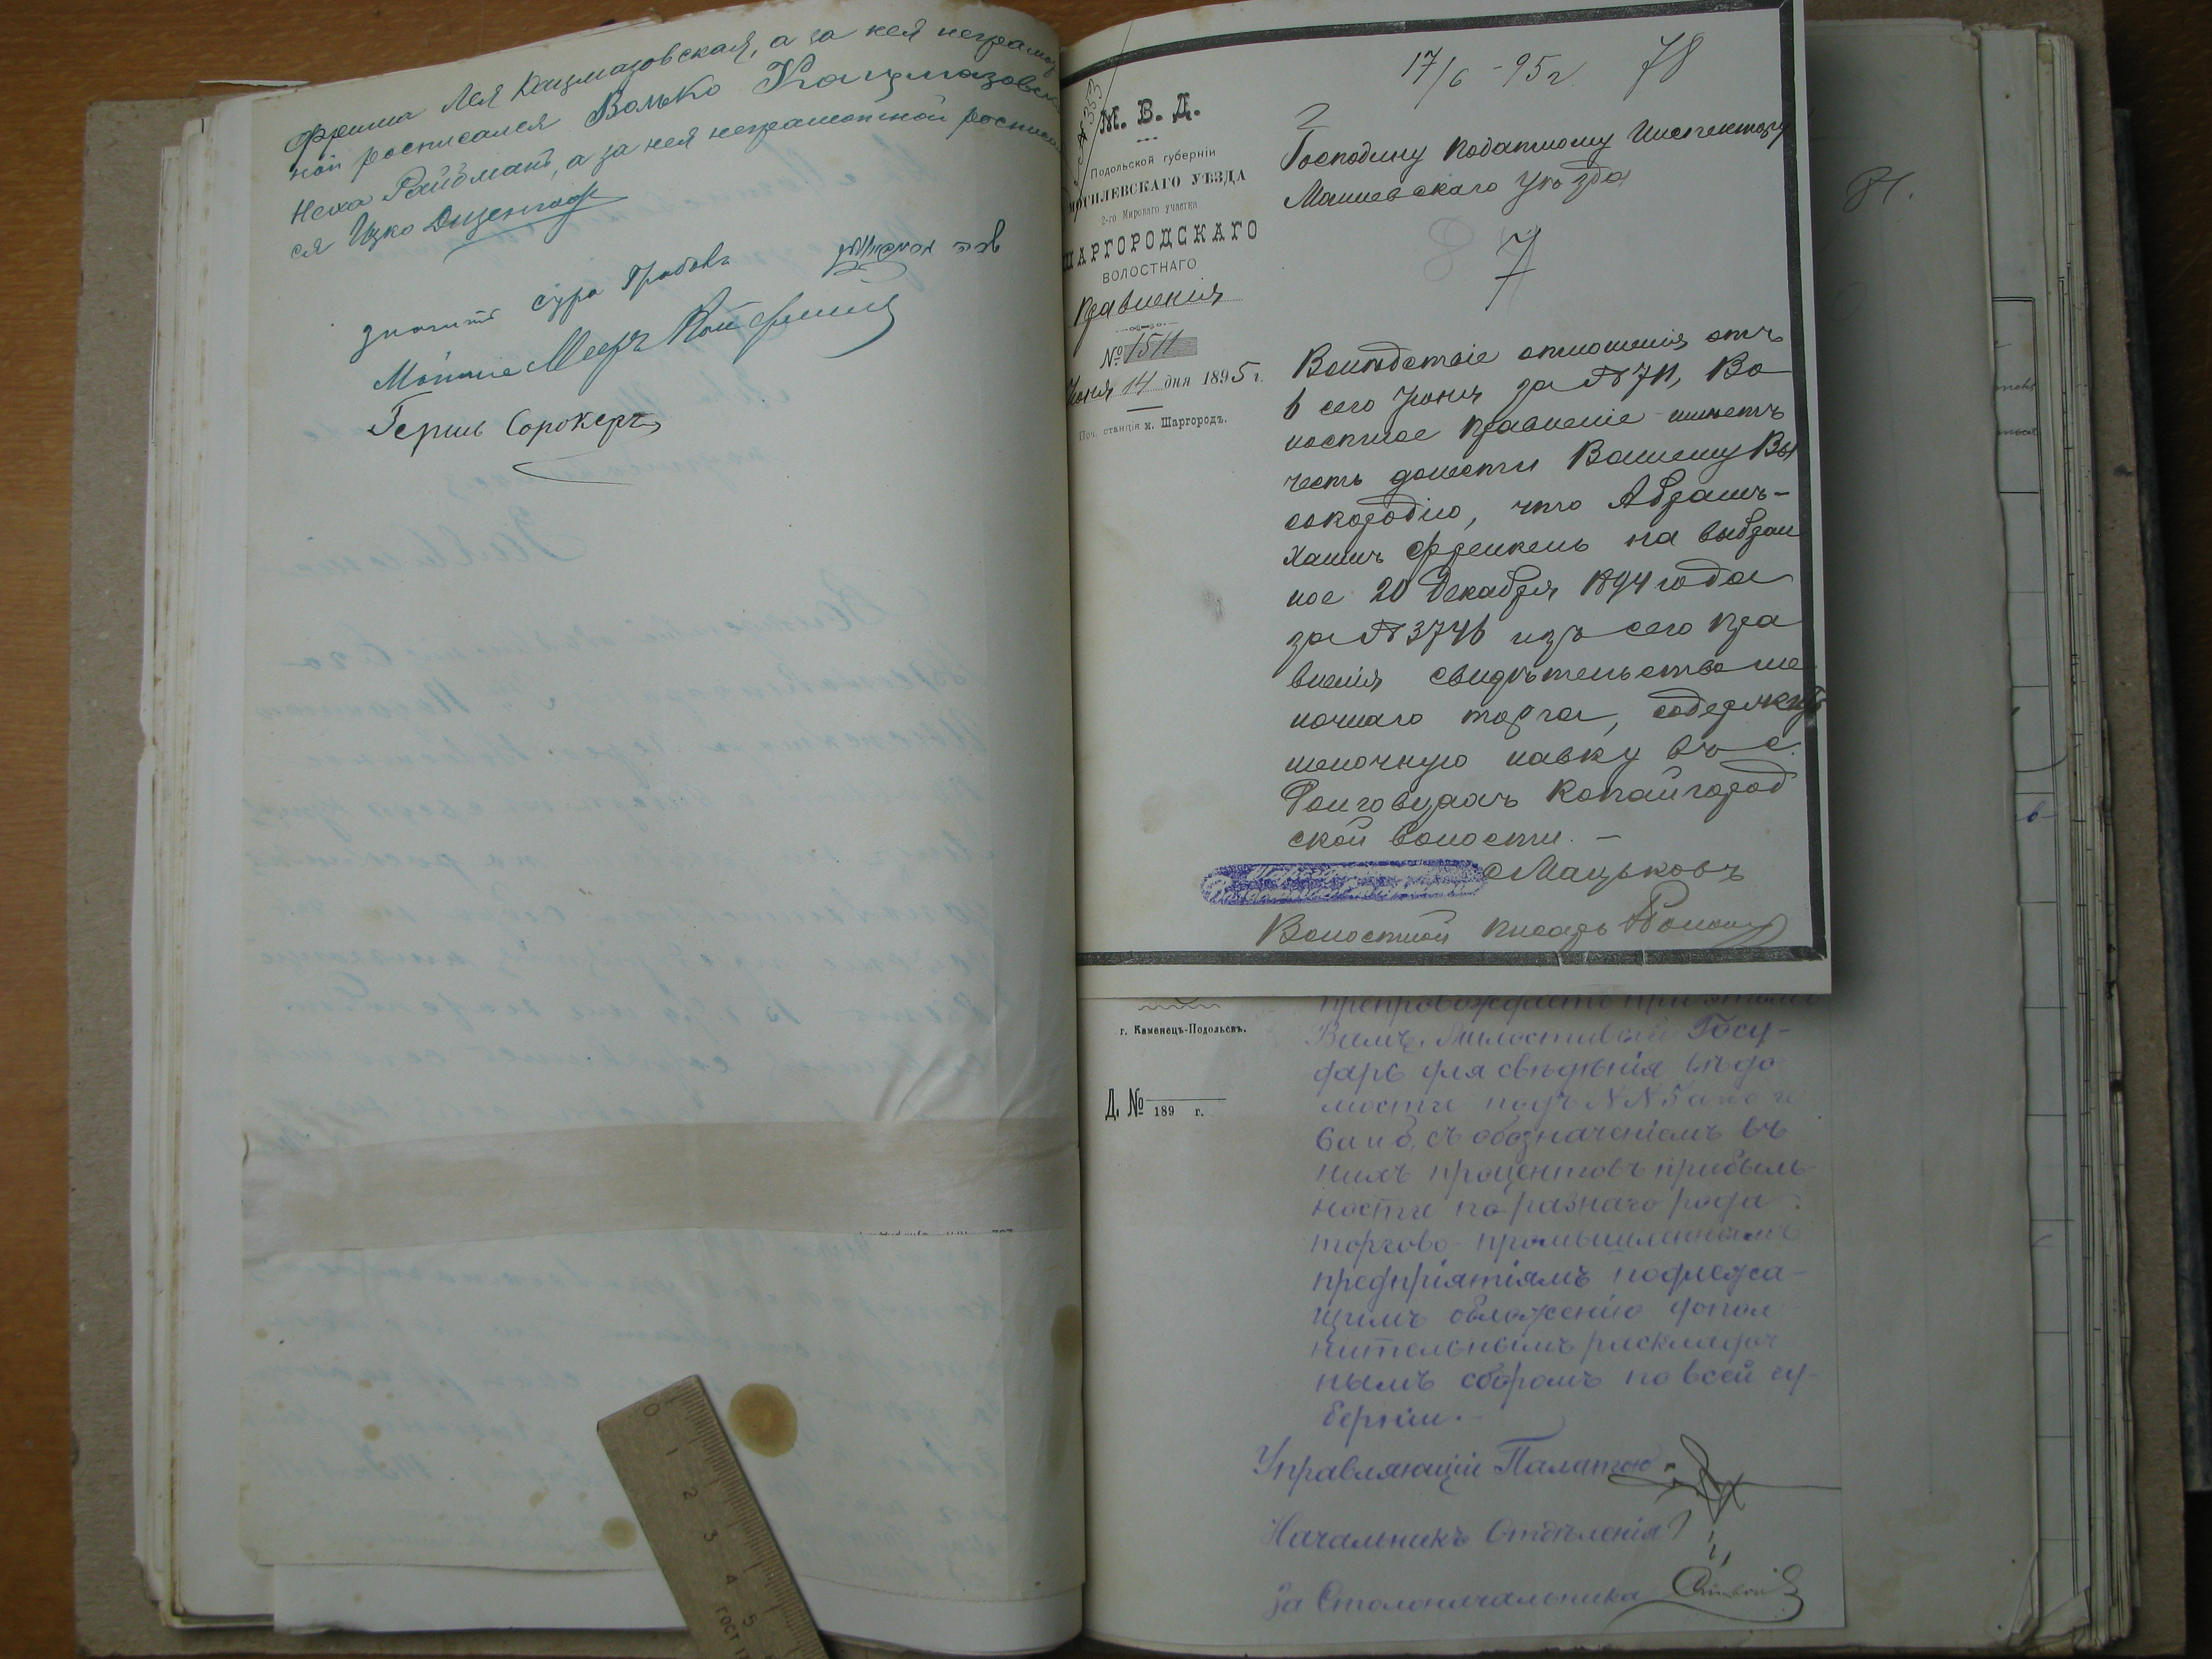 Фрима Лея Кацмазовская, а за нея неграмот
ной росписался Волько Кацмазовск
Неха Ройдман, а за нея неграмотной росписал
ся Ицко Диценгаф
значитъ сура Грабовъ
Мошие Мееръ Ройфманъ
Гершъ Сорокеръ
17/6 - 95 г.
78
№ 353
М. В. Д.
Подольской губерніи
МОГИЛЕВСКАГО УѢЗДА
2-го Мироваго участка
ШАРГОРОДСКАГО
ВОЛОСТНАГО
Правленія
№ 1511
Іюня 14 дня 1895 г.
Поч. станція м. Шаргородъ.
Господину Податному Инспектору
Могилевскаго уѣзда
7
Вслѣдствіе отношенія отъ
6 сего Іюня за № 711, Во
лостное Правленіе имѣетъ
честь донести Вашему Вы
сокородію, что Абрамъ-
Хаимъ Френкель на выдан
ное 20 Декабря 1894 года
за № 3746 изъ сего Пра
вленія свидѣтельство ме
лочнаго торга, содержитъ
мелочную лавку въ с.
Голговцахъ Копайгород
ской волости. -
Мацьковъ
Волостной Писарь
81.
г. Каменецъ-Подольскъ.
Д. № 189 г.
препровождаетъ при этомъ
Вамъ, Милостивый Госу-
дарь для свѣдѣнія вѣдо
мости подъ №№ 5 а и б и
6 а и б, съ обозначеніемъ въ
нихъ процентовъ прибыль-
ности по разнаго рода
торгово-промышленнымъ
предпріятіямъ подлежа-
щимъ обложенію допол
нительнымъ раскладоч
нымъ сборомъ по всей гу-
берніи.-
Управляющій Палатою
Начальникъ Отдѣленія
За Столоначальника
0 1 2 3 4 5
ГОСТ